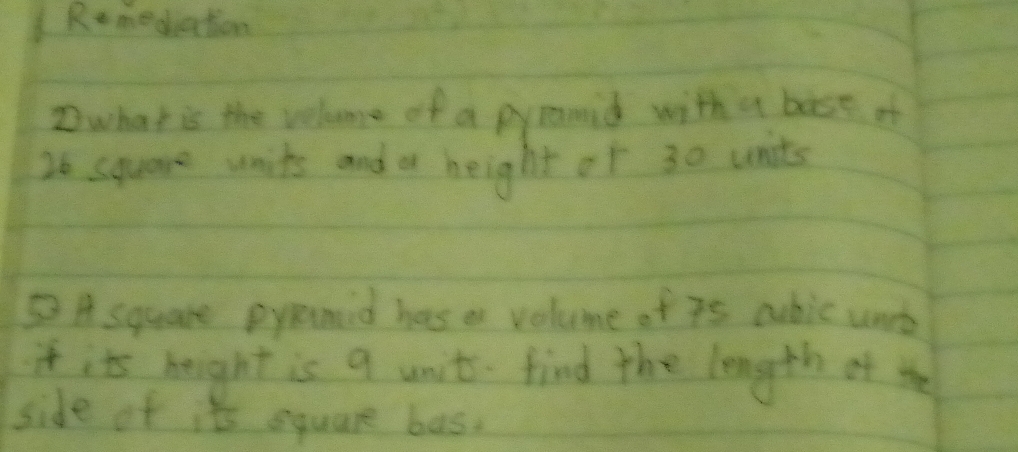 Remediation
1) what is the volume of a pyramid with a base of
26 square units and a height of 30 units
2) A square pyramid has a volume of 75 cubic units
if its height is 9 units. find the length of the
side of its square bas.